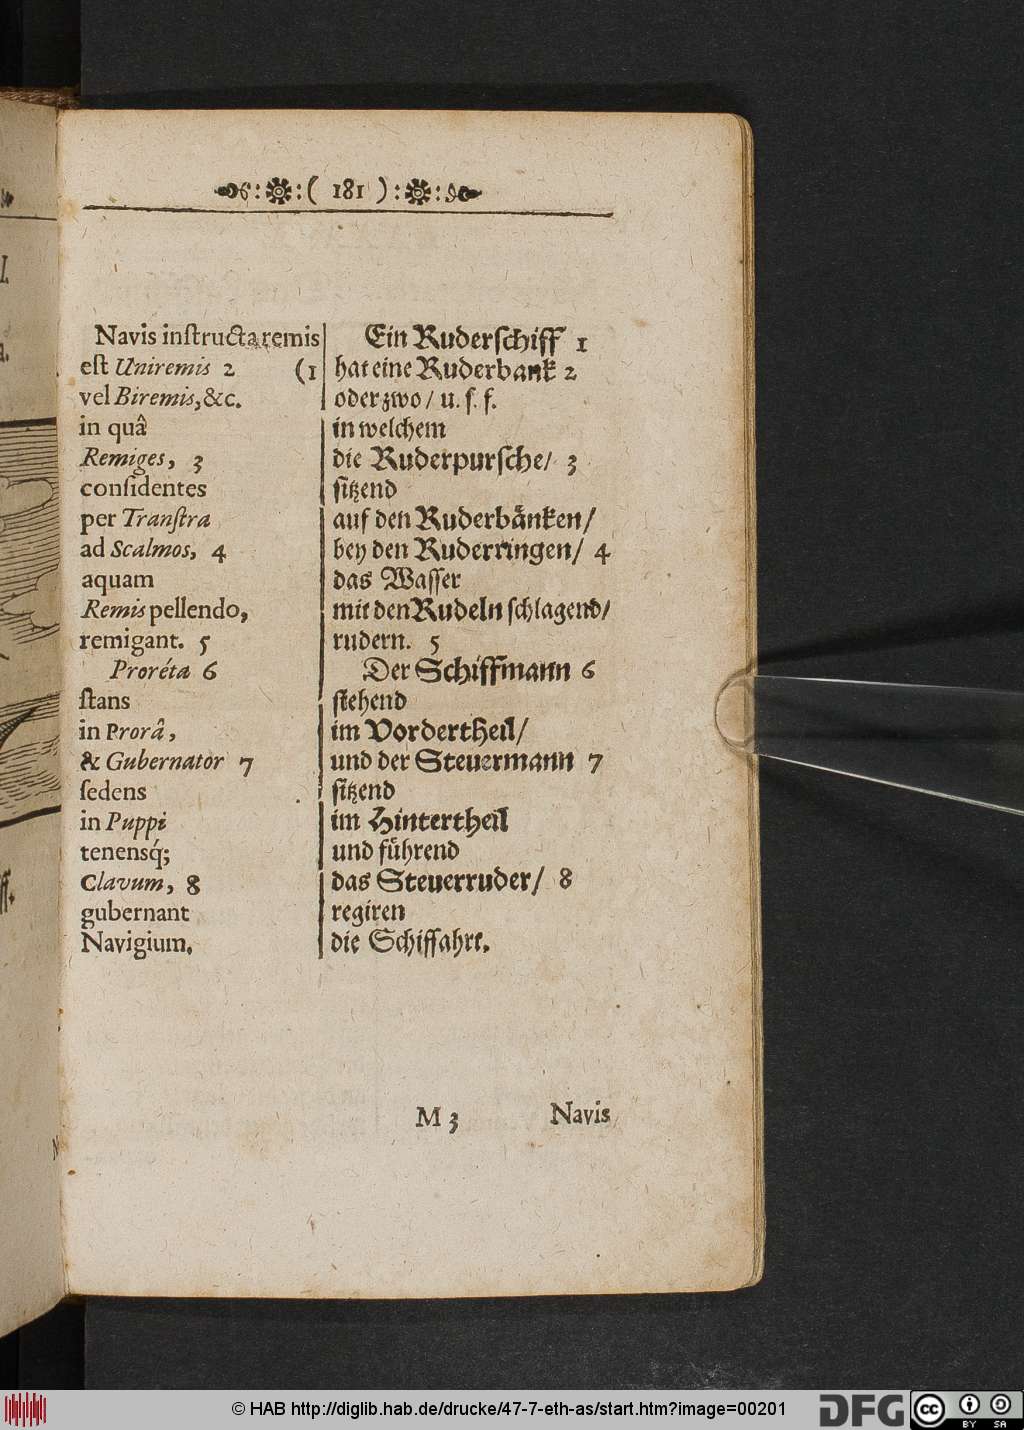 :( 181 ):
Navis inſtructa remis
eſt Uniremis 2 (1
vel Biremis, &c.
in quâ
Remiges, 3
conſidentes
per Tranſtra
ad Scalmos, 4
aquam
Remis pellendo,
remigant. 5
Proréta 6
ſtans
in Prorâ,
& Gubernator 7
ſedens
in Puppi
tenensq́;
Clavum, 8
gubernant
Navigium.
Ein Ruderſchiff 1
hat eine Ruderbank 2
oder zwo / u. ſ. f.
in welchem
die Ruderpurſche / 3
ſitzend
auf den Ruderbänken /
bey den Ruderringen / 4
das Waſſer
mit den Rudeln ſchlagend /
rudern. 5
Der Schiffmann 6
ſtehend
im Vordertheil /
und der Steuermann 7
ſitzend
im Hintertheil
und führend
das Steuerruder / 8
regiren
die Schiffahrt.
M 3 Navis
© HAB http://diglib.hab.de/drucke/47-7-eth-as/start.htm?image=00201
DFG
cc BY SA